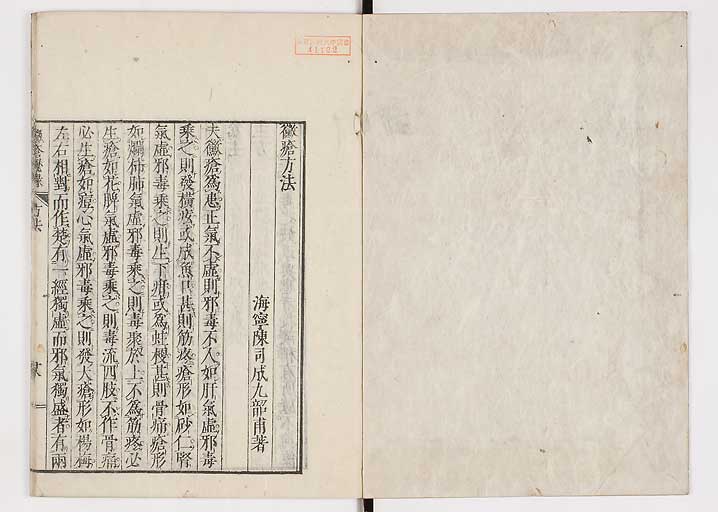 黴瘡方法
海寧陳司成九韶甫著
夫黴瘡爲患正氣不虛則邪毒不入如肝氣虛邪毒
乘之則發橫痃或成魚口甚則筋疼瘡形如砂仁腎
氣虛邪毒乘之則生下疳或爲蛀梗甚則骨痛瘡形
如爛柿肺氣虛邪毒乘之則毒聚於上不爲筋疼必
生瘡如花脾氣虛邪毒乘之則毒流四肢不作骨痛
必生瘡如痘心氣虛邪毒乘之則發大瘡形如楊梅
左右相對而作楚有一經獨虛而邪氣獨盛者有兩
方法
41192